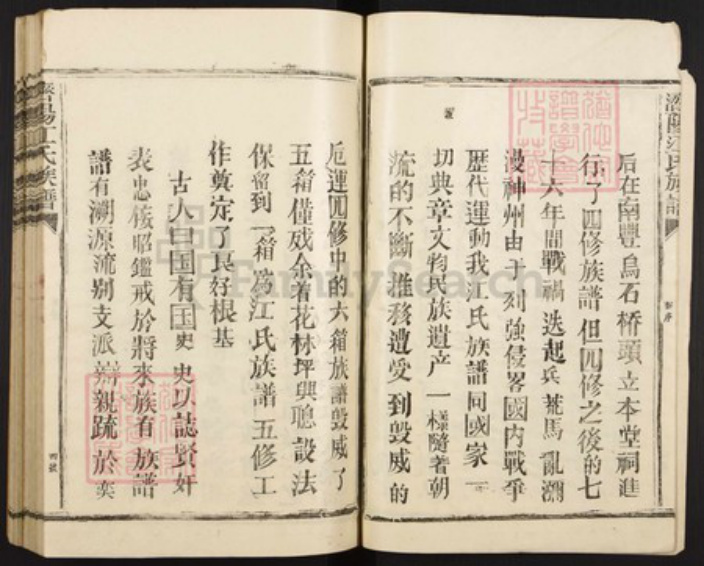 后在南豐烏石桥頭立本堂祠進
行了四修族谱但四修之後的七
十六年間戰禍迭起兵荒馬亂瀰
漫神州由于列強侵畧國内戰争
歷代運動我江氏族譜同國家一
切典章文物民族遺产一樣隨著朝
流的不斷推移遭受到毀威的
厄運四修中的六箱族譜毀威了
五箱僅残余着花林坪與聰設法
保留到一箱為江氏族譜五修工
作奠定了良好根基
古人曰国有国史史以誌賢奸
表忠佞昭鑑戒於將來族有族譜
譜有溯源流别支派辨親疏於奕
江氏族譜
江氏族譜
四號
FamilySearch